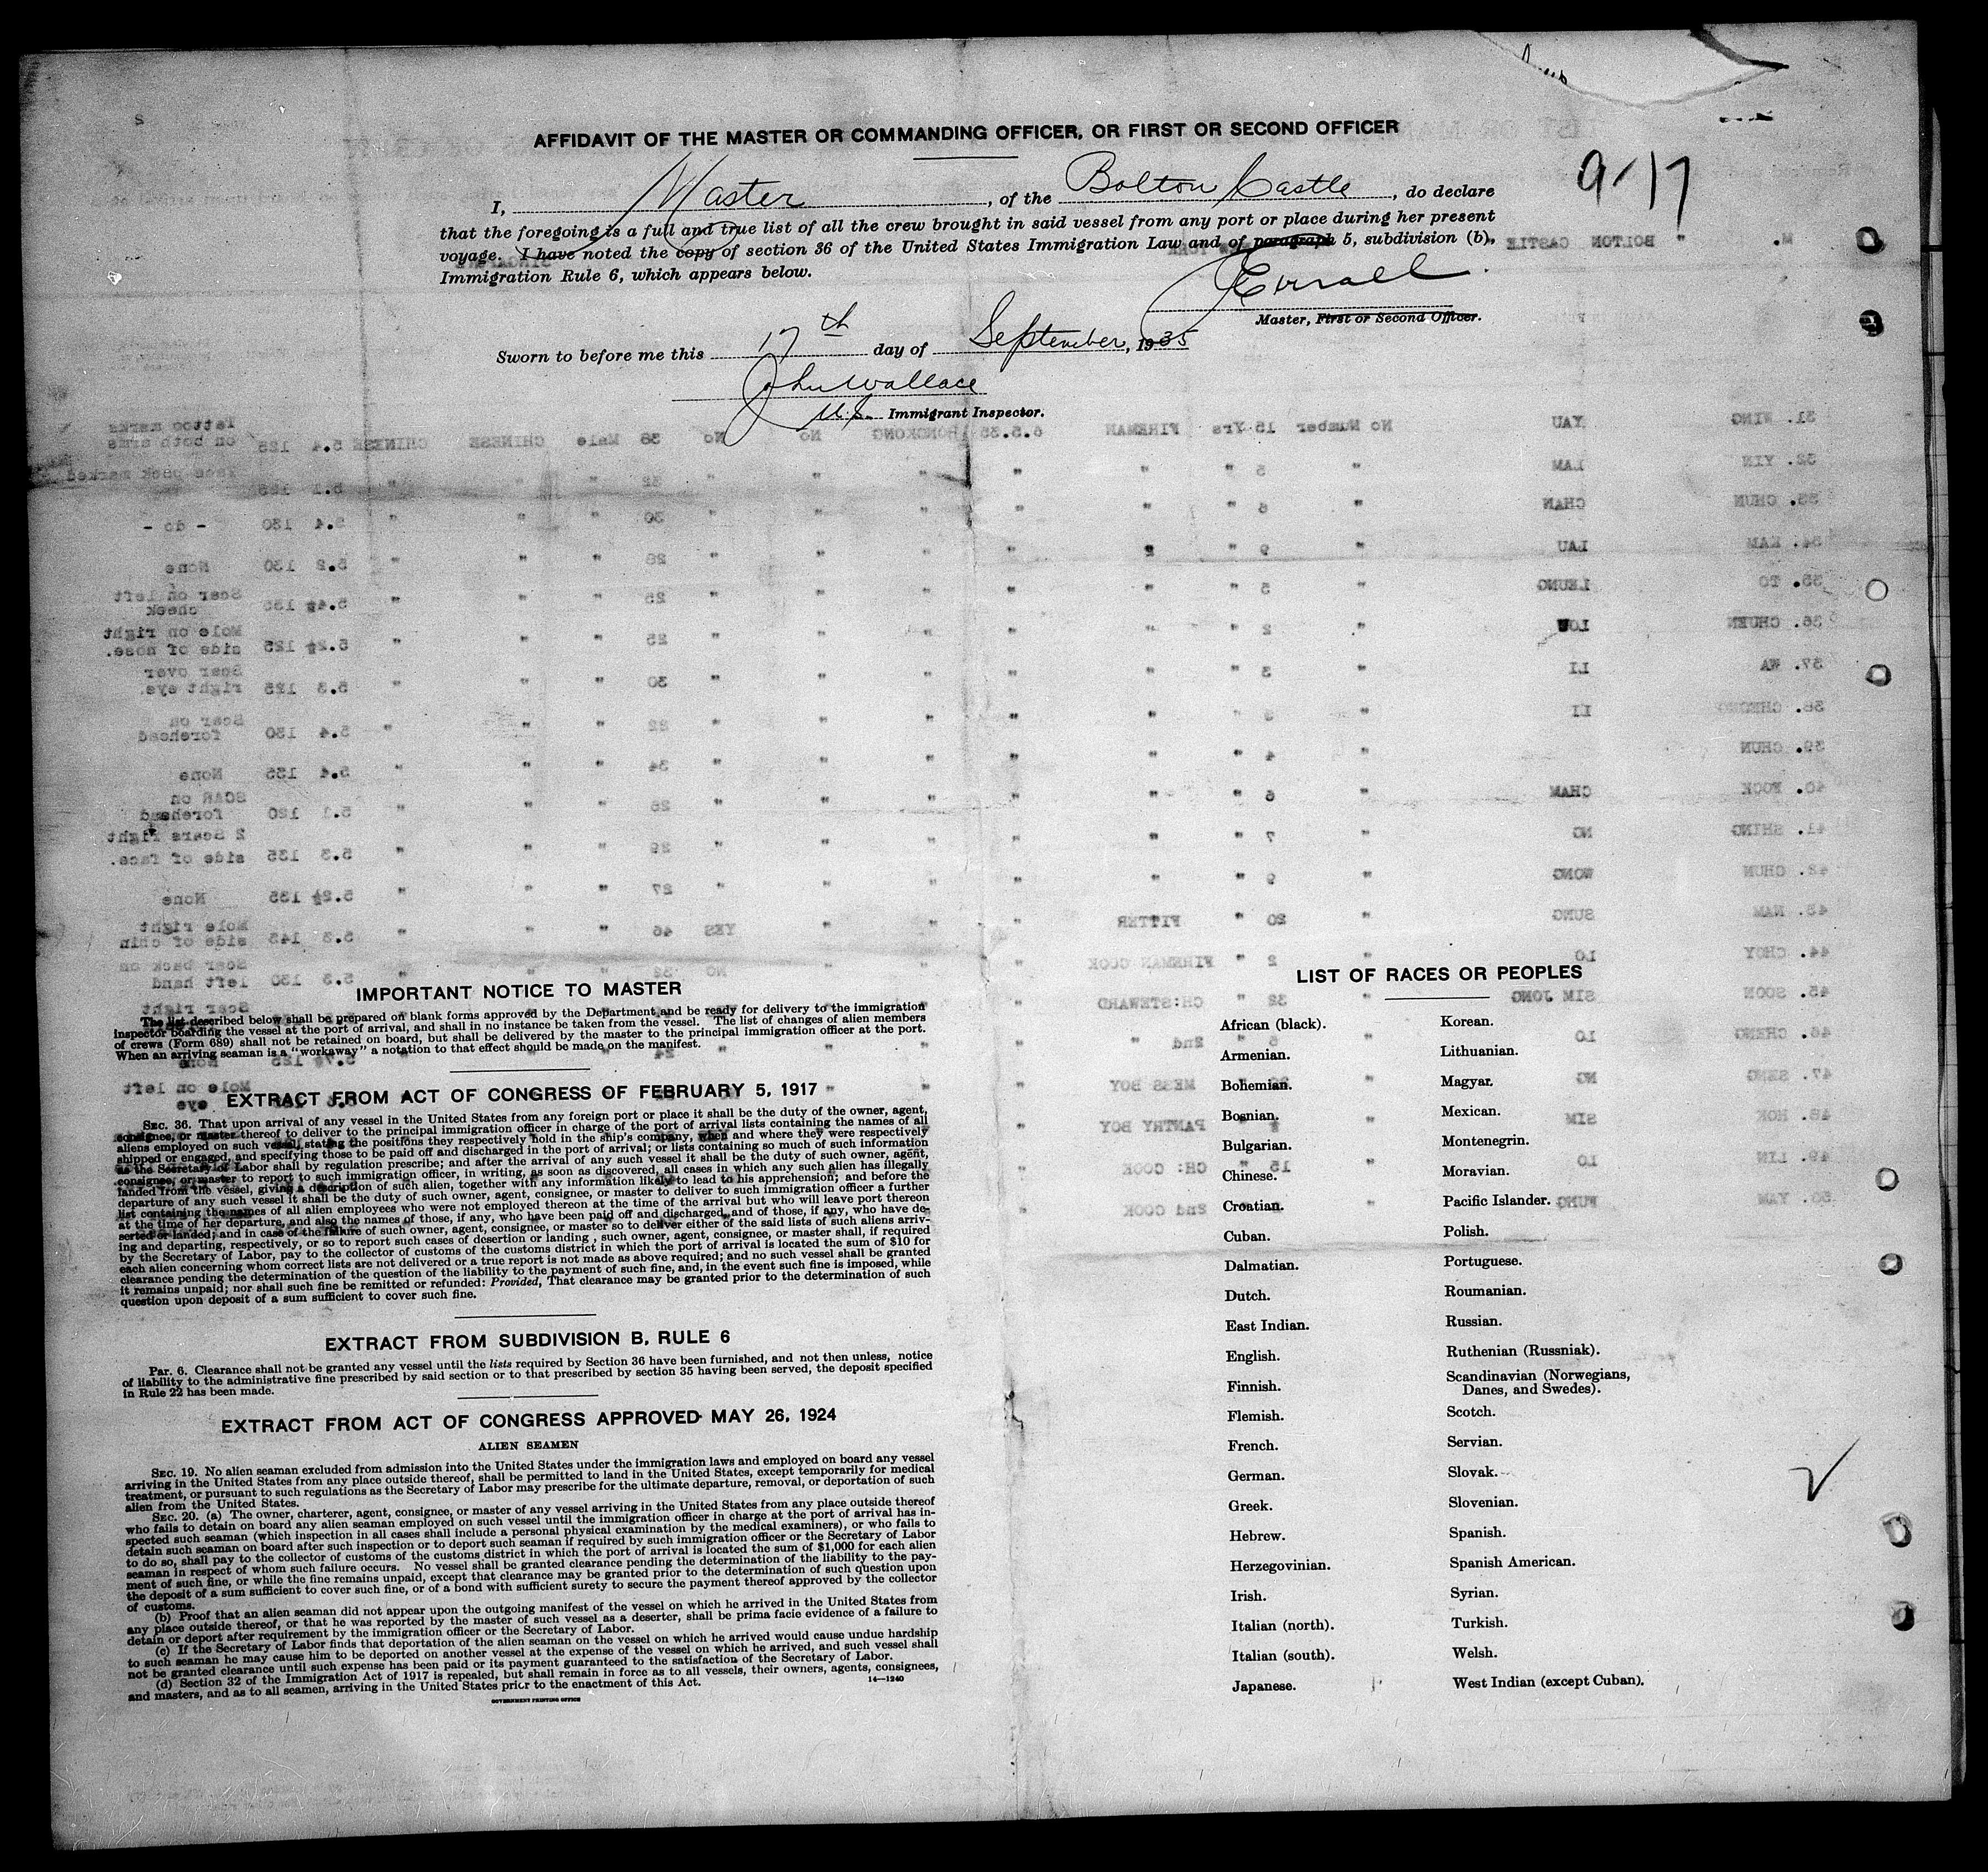 AFFIDAVIT OF THE MASTER OR COMMANDING OFFICER, OR FIRST OR SECOND OFFICER
9-17
I, Master, of the Bolton Castle, do declare
that the foregoing is a full and true list of all the crew brought in said vessel from any port or place during her present
voyage. I have noted the copy of section 36 of the United States Immigration Law and of paragraph 5, subdivision (b),
Immigration Rule 6, which appears below.
Master, First or Second Officer.
Sworn to before me this 17th day of September, 1935
John Wallace
U.S. Immigrant Inspector.
IMPORTANT NOTICE TO MASTER
The list described below shall be prepared on blank forms approved by the Department and be ready for delivery to the immigration
inspector boarding the vessel at the port of arrival, and shall in no instance be taken from the vessel. The list of changes of alien members
of crews (Form 689) shall not be retained on board, but shall be delivered by the master to the principal immigration officer at the port.
When an arriving seaman is a "workaway" a notation to that effect should be made on the manifest.
EXTRACT FROM ACT OF CONGRESS OF FEBRUARY 5, 1917
SEC. 36. That upon arrival of any vessel in the United States from any foreign port or place it shall be the duty of the owner, agent,
consignee, or master thereof to deliver to the principal immigration officer in charge of the port of arrival lists containing the names of all
aliens employed on such vessel, stating the positions they respectively hold in the ship's company, when and where they were respectively
shipped or engaged, and specifying those to be paid off and discharged in the port of arrival; or lists containing so much of such information
as the Secretary of Labor shall by regulation prescribe; and after the arrival of any such vessel it shall be the duty of such owner, agent,
consignee, or master to report to such immigration officer, in writing, as soon as discovered, all cases in which any such alien has illegally
landed from the vessel, giving a description of such alien, together with any information likely to lead to his apprehension; and before the
departure of any such vessel it shall be the duty of such owner, agent, consignee, or master to deliver to such immigration officer a further
list containing the names of all alien employees who were not employed thereon at the time of the arrival but who will leave port thereon
at the time of her departure, and also the names of those, if any, who have been paid off and discharged, and of those, if any, who have de-
serted or landed; and in case of the failure of such owner, agent, consignee, or master so to deliver either of the said lists of such aliens arriv-
ing and departing, respectively, or so to report such cases of desertion or landing , such owner, agent, consignee, or master shall, if required
by the Secretary of Labor, pay to the collector of customs of the customs district in which the port of arrival is located the sum of $10 for
each alien concerning whom correct lists are not delivered or a true report is not made as above required; and no such vessel shall be granted
clearance pending the determination of the question of the liability to the payment of such fine, and, in the event such fine is imposed, while
it remains unpaid; nor shall such fine be remitted or refunded: Provided, That clearance may be granted prior to the determination of such
question upon deposit of a sum sufficient to cover such fine.
EXTRACT FROM SUBDIVISION B, RULE 6
PAR. 6. Clearance shall not be granted any vessel until the lists required by Section 36 have been furnished, and not then unless, notice
of liability to the administrative fine prescribed by said section or to that prescribed by section 35 having been served, the deposit specified
in Rule 22 has been made.
EXTRACT FROM ACT OF CONGRESS APPROVED MAY 26, 1924
ALIEN SEAMEN
SEC. 19. No alien seaman excluded from admission into the United States under the immigration laws and employed on board any vessel
arriving in the United States from any place outside thereof, shall be permitted to land in the United States, except temporarily for medical
treatment, or pursuant to such regulations as the Secretary of Labor may prescribe for the ultimate departure, removal, or deportation of such
alien from the United States.
SEC. 20. (a) The owner, charterer, agent, consignee, or master of any vessel arriving in the United States from any place outside thereof
who fails to detain on board any alien seaman employed on such vessel until the immigration officer in charge at the port of arrival has in-
spected such seaman (which inspection in all cases shall include a personal physical examination by the medical examiners), or who fails to
detain such seaman on board after such inspection or to deport such seaman if required by such immigration officer or the Secretary of Labor
to do so, shall pay to the collector of customs of the customs district in which the port of arrival is located the sum of $1,000 for each alien
seaman in respect of whom such failure occurs. No vessel shall be granted clearance pending the determination of the liability to the pay-
ment of such fine, or while the fine remains unpaid, except that clearance may be granted prior to the determination of such question upon
the deposit of a sum sufficient to cover such fine, or of a bond with sufficient surety to secure the payment thereof approved by the collector
of customs.
(b) Proof that an alien seaman did not appear upon the outgoing manifest of the vessel on which he arrived in the United States from
any place outside thereof, or that he was reported by the master of such vessel as a deserter, shall be prima facie evidence of a failure to
detain or deport after requirement by the immigration officer or the Secretary of Labor.
(c) If the Secretary of Labor finds that deportation of the alien seaman on the vessel on which he arrived would cause undue hardship
to such seaman he may cause him to be deported on another vessel at the expense of the vessel on which he arrived, and such vessel shall
not be granted clearance until such expense has been paid or its payment guaranteed to the satisfaction of the Secretary of Labor.
(d) Section 32 of the Immigration Act of 1917 is repealed, but shall remain in force as to all vessels, their owners, agents, consignees,
and masters, and as to all seamen, arriving in the United States prior to the enactment of this Act.
14—1240
GOVERNMENT PRINTING OFFICE
LIST OF RACES OR PEOPLES
African (black).
Armenian.
Bohemian.
Bosnian.
Bulgarian.
Chinese.
Croatian.
Cuban.
Dalmatian.
Dutch.
East Indian.
English.
Finnish.
Flemish.
French.
German.
Greek.
Hebrew.
Herzegovinian.
Irish.
Italian (north).
Italian (south).
Japanese.
Korean.
Lithuanian.
Magyar.
Mexican.
Montenegrin.
Moravian.
Pacific Islander.
Polish.
Portuguese.
Roumanian.
Russian.
Ruthenian (Russniak).
Scandinavian (Norwegians,
Danes, and Swedes).
Scotch.
Servian.
Slovak.
Slovenian.
Spanish.
Spanish American.
Syrian.
Turkish.
Welsh.
West Indian (except Cuban).